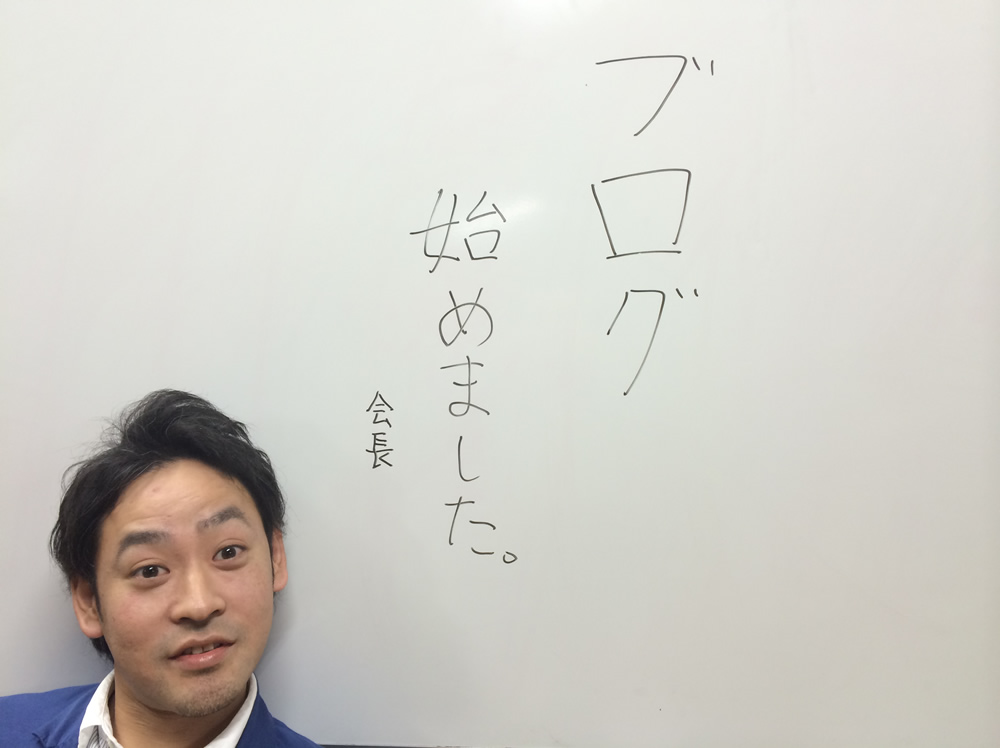 ブログ
始めました。
会長